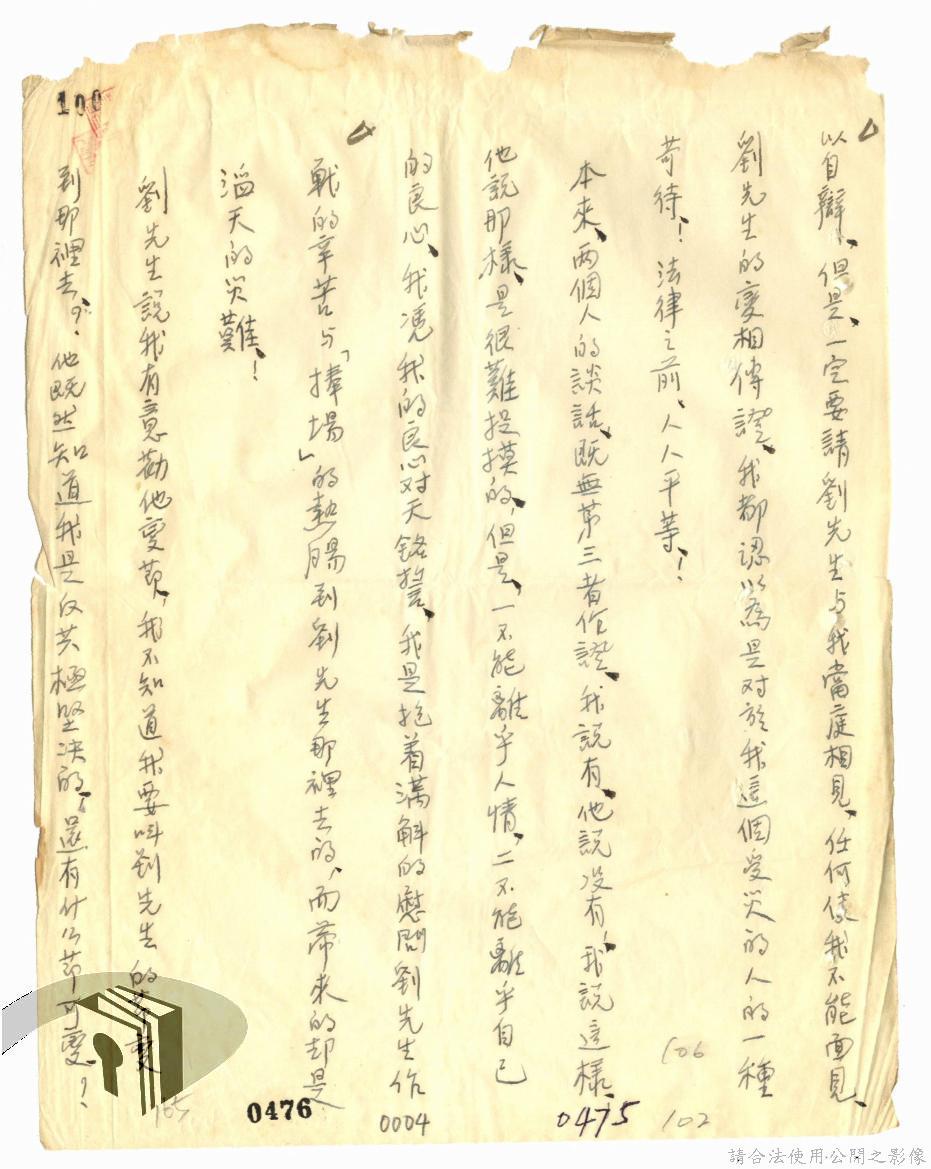 以自辯、但是、一定要請劉先生与我當庭相見、任何使我不能面見、
劉先生的變相傳證、我都認以為是对於我這個受災的人的一種
苛待！法律之前、人人平等、！
本來、两個人的談話、既無第三者作證、我說有、他說没有、我說這樣、
他說那樣、是很難捉摸的、但是、一不能離乎人情、二不能離乎自己
的良心、我凴我的良心对天銘誓、我是抱着满斛的慰問劉先生作
戰的辛苦与「捧場」的熱腸到劉先生那裡去的、而帶來的却是
滔天的災難、！
劉先生說我有意勸他变節、我不知道我要叫劉先生的節變
到那裡去？、他既然知道我是反共極堅决的、還有什么節可變、？
100
106
102
0475
0004
0476
105
請合法使用·公開之影像